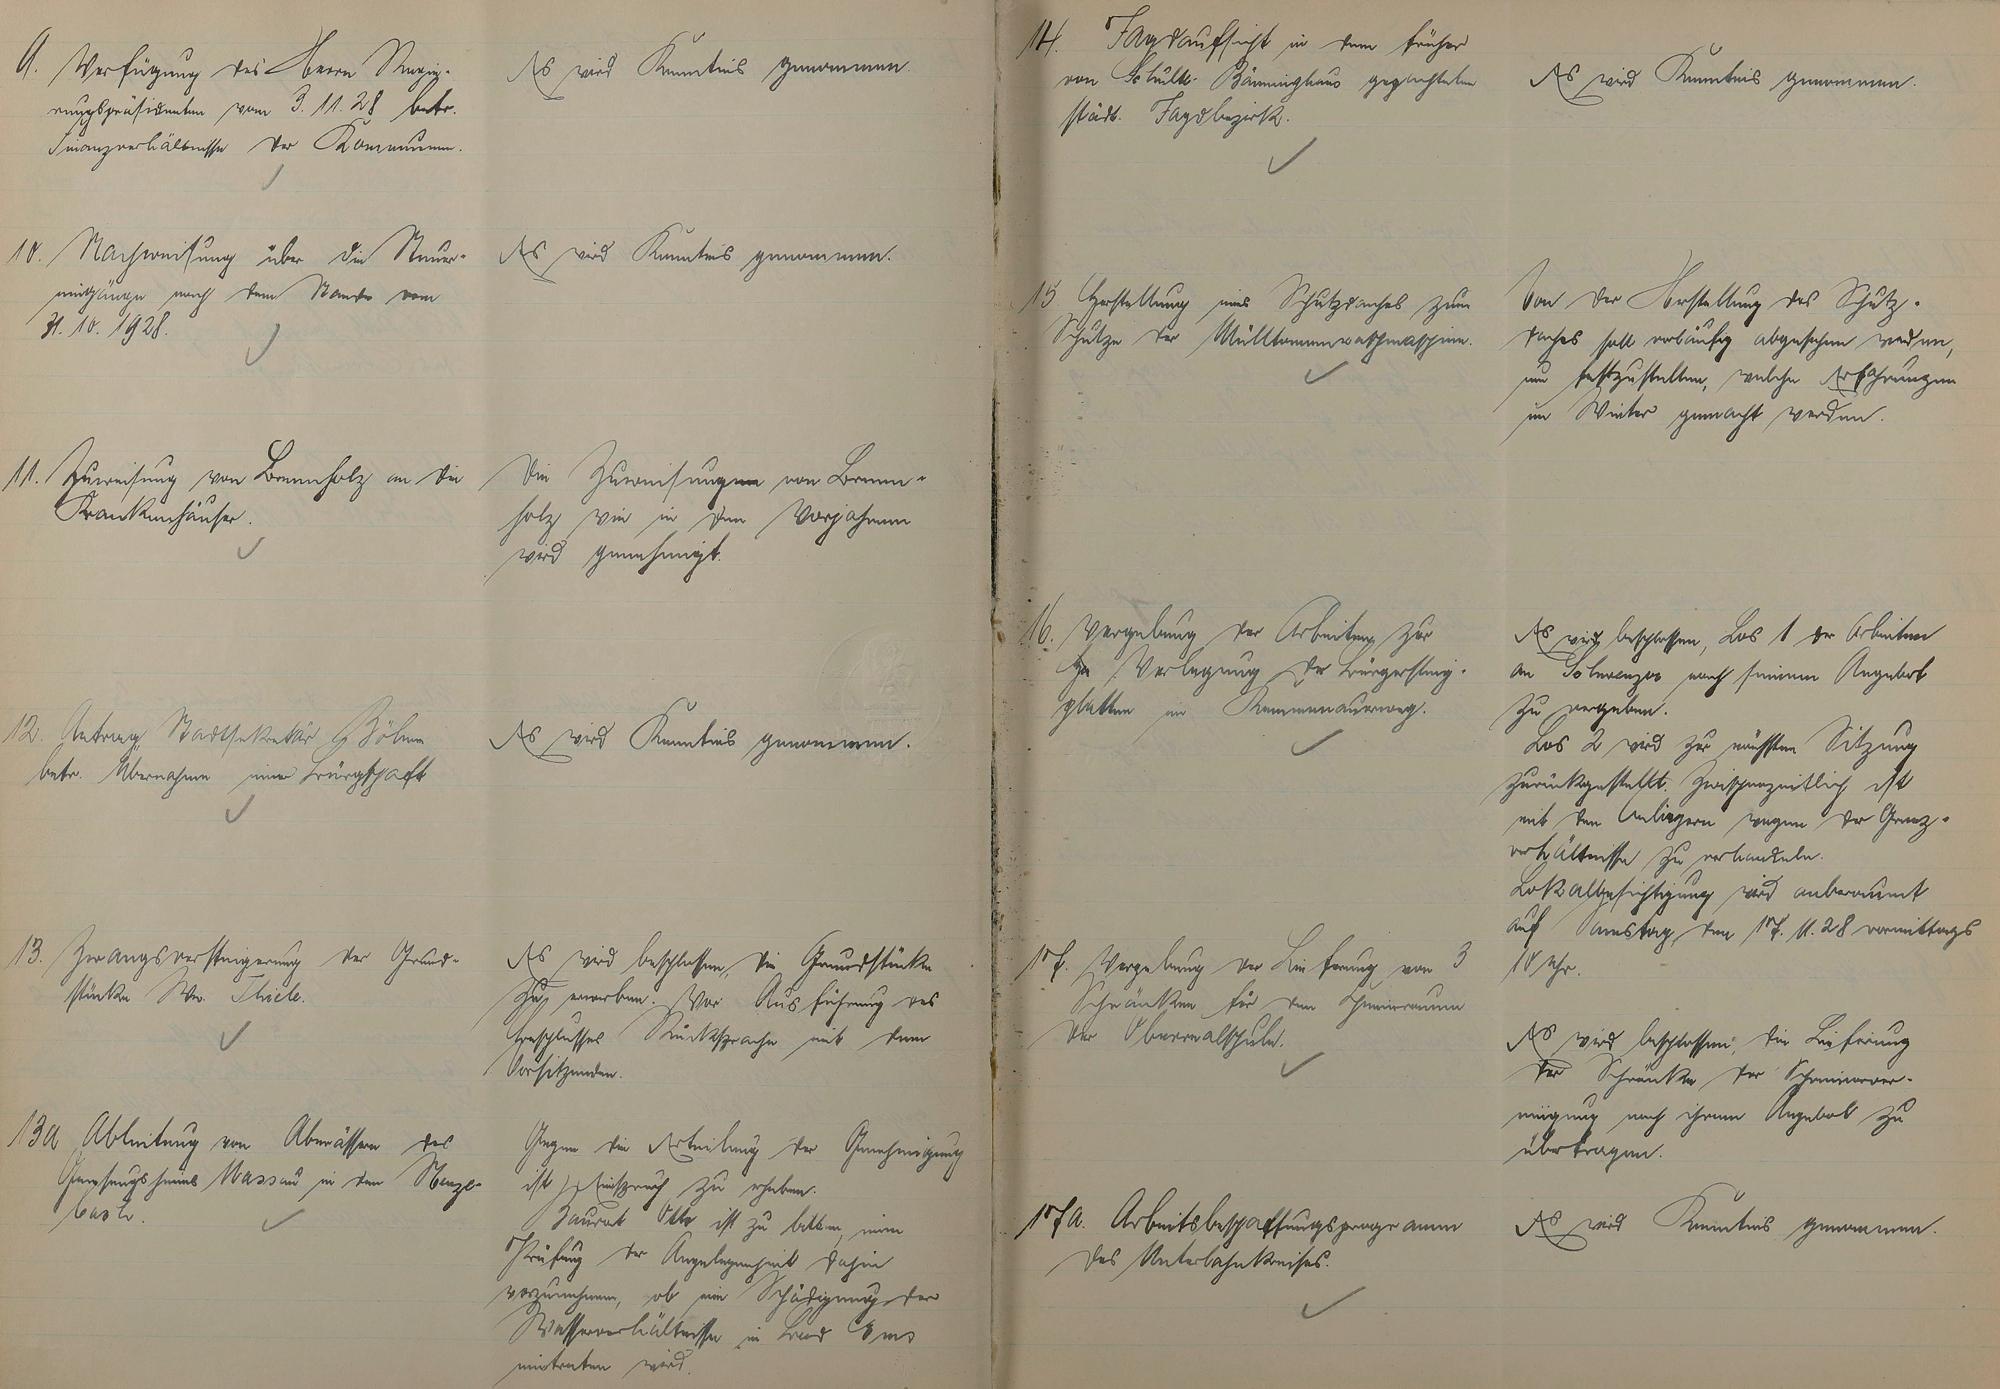 9. Verfügung des Herrn Regie-
rungspräsidenten vom 3.11.28 betr.
Finanzverhältnisse der Kommunen.
Es wird Kenntnis genommen.
10. Nachweisung über die Steuer-
eingänge nach dem Stande vom
31.10.1928.
Es wird Kenntnis genommen.
11. Zuweisung von Brennholz an die
Krankenhäuser.
Die Zuweisungen von Brenn-
holz wie in den Vorjahren
wird genehmigt.
12. Antrag Stadtsekretär Böhm
betr. Übernahme einer Bürgschaft
Es wird Kenntnis genommen.
13. Zwangsversteigerung der Grund-
stücke Ww. Thiele.
Es wird beschlossen, die Grundstücke
zu erwerben. Vor Ausführung des
Beschlusses Rücksprache mit dem
Vorsitzenden.
13a Ableitung von Abwässern des
Genesungsheims Nassau in den
bach.
Gegen die Erteilung der Genehmigung
ist Einspruch zu erheben.
Baurat Otto ist zu bitten, eine
Prüfung der Angelegenheit dahin
vorzunehmen, ob eine Schädigung der
Wasserverhältnisse in Bad Ems
eintreten wird.
14. Jagdaufsicht in dem früher
von Schulte-Bäuminghaus gepachteten
städt. Jagdbezirk.
Es wird Kenntnis genommen.
15 Herstellung eines Schutzdaches zum
Schutze der Mülltonnenwaschmaschine.
Von der Herstellung des Schutz-
daches soll vorläufig abgesehen werden,
um festzustellen, welche Erfahrungen
im Winter gemacht werden.
16. Vergebung der Arbeiten zur
Verlegung der Bürgersteig-
platten im Kemmenauerweg.
Es wird beschlossen, Los 1 der Arbeiten
an nach seinem Angebot
zu vergeben.
Los 2 wird zur nächsten Sitzung
zurückgestellt. Zwischenzeitlich ist
mit den Anliegern wegen der Grenz-
verhältnisse zu verhandeln.
Lokalbesichtigung wird anberaumt
auf Samstag, den 17.11.28 vormittags
10 Uhr.
17. Vergebung der Lieferung von 3
Schränken für den Chemieraum
der Oberrealschule.
Es wird beschlossen, die Lieferung
der Schränke der Schreinerver-
einigung nach ihrem Angebot zu
übertragen.
17a. Arbeitsbeschaffungsprogramm
des Unterlahnkreises.
Es wird Kenntnis genommen.